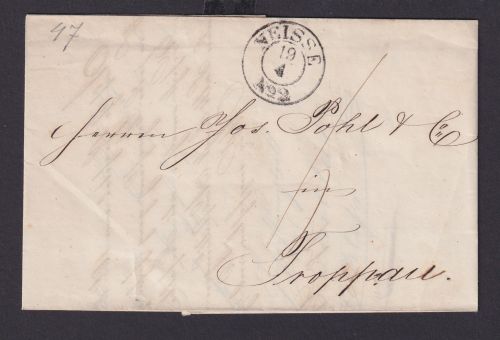 47
NEISSE
19
4
No 2
Herrn Jos. Pohl & Co
in
Troppau.